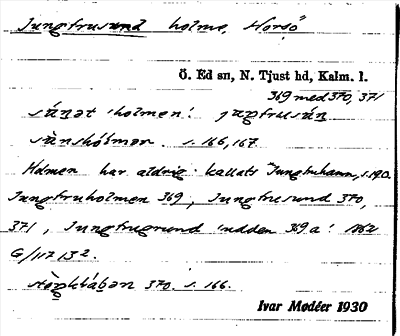 Jungfrusund holme, Horsö
Ö. Ed sn, N. Tjust hd, Kalm. l.
369 med 370, 371
holmen!
s. 166, 167
Holmen har aldrig kallats Jungfruhamn, s. 190.
Jungfruholmen 369, Jungfrusund 370,
371, Jungfrugrund udden 369 a! 1862
G/117 13².
370. s. 166.
Ivar Modéer 1930